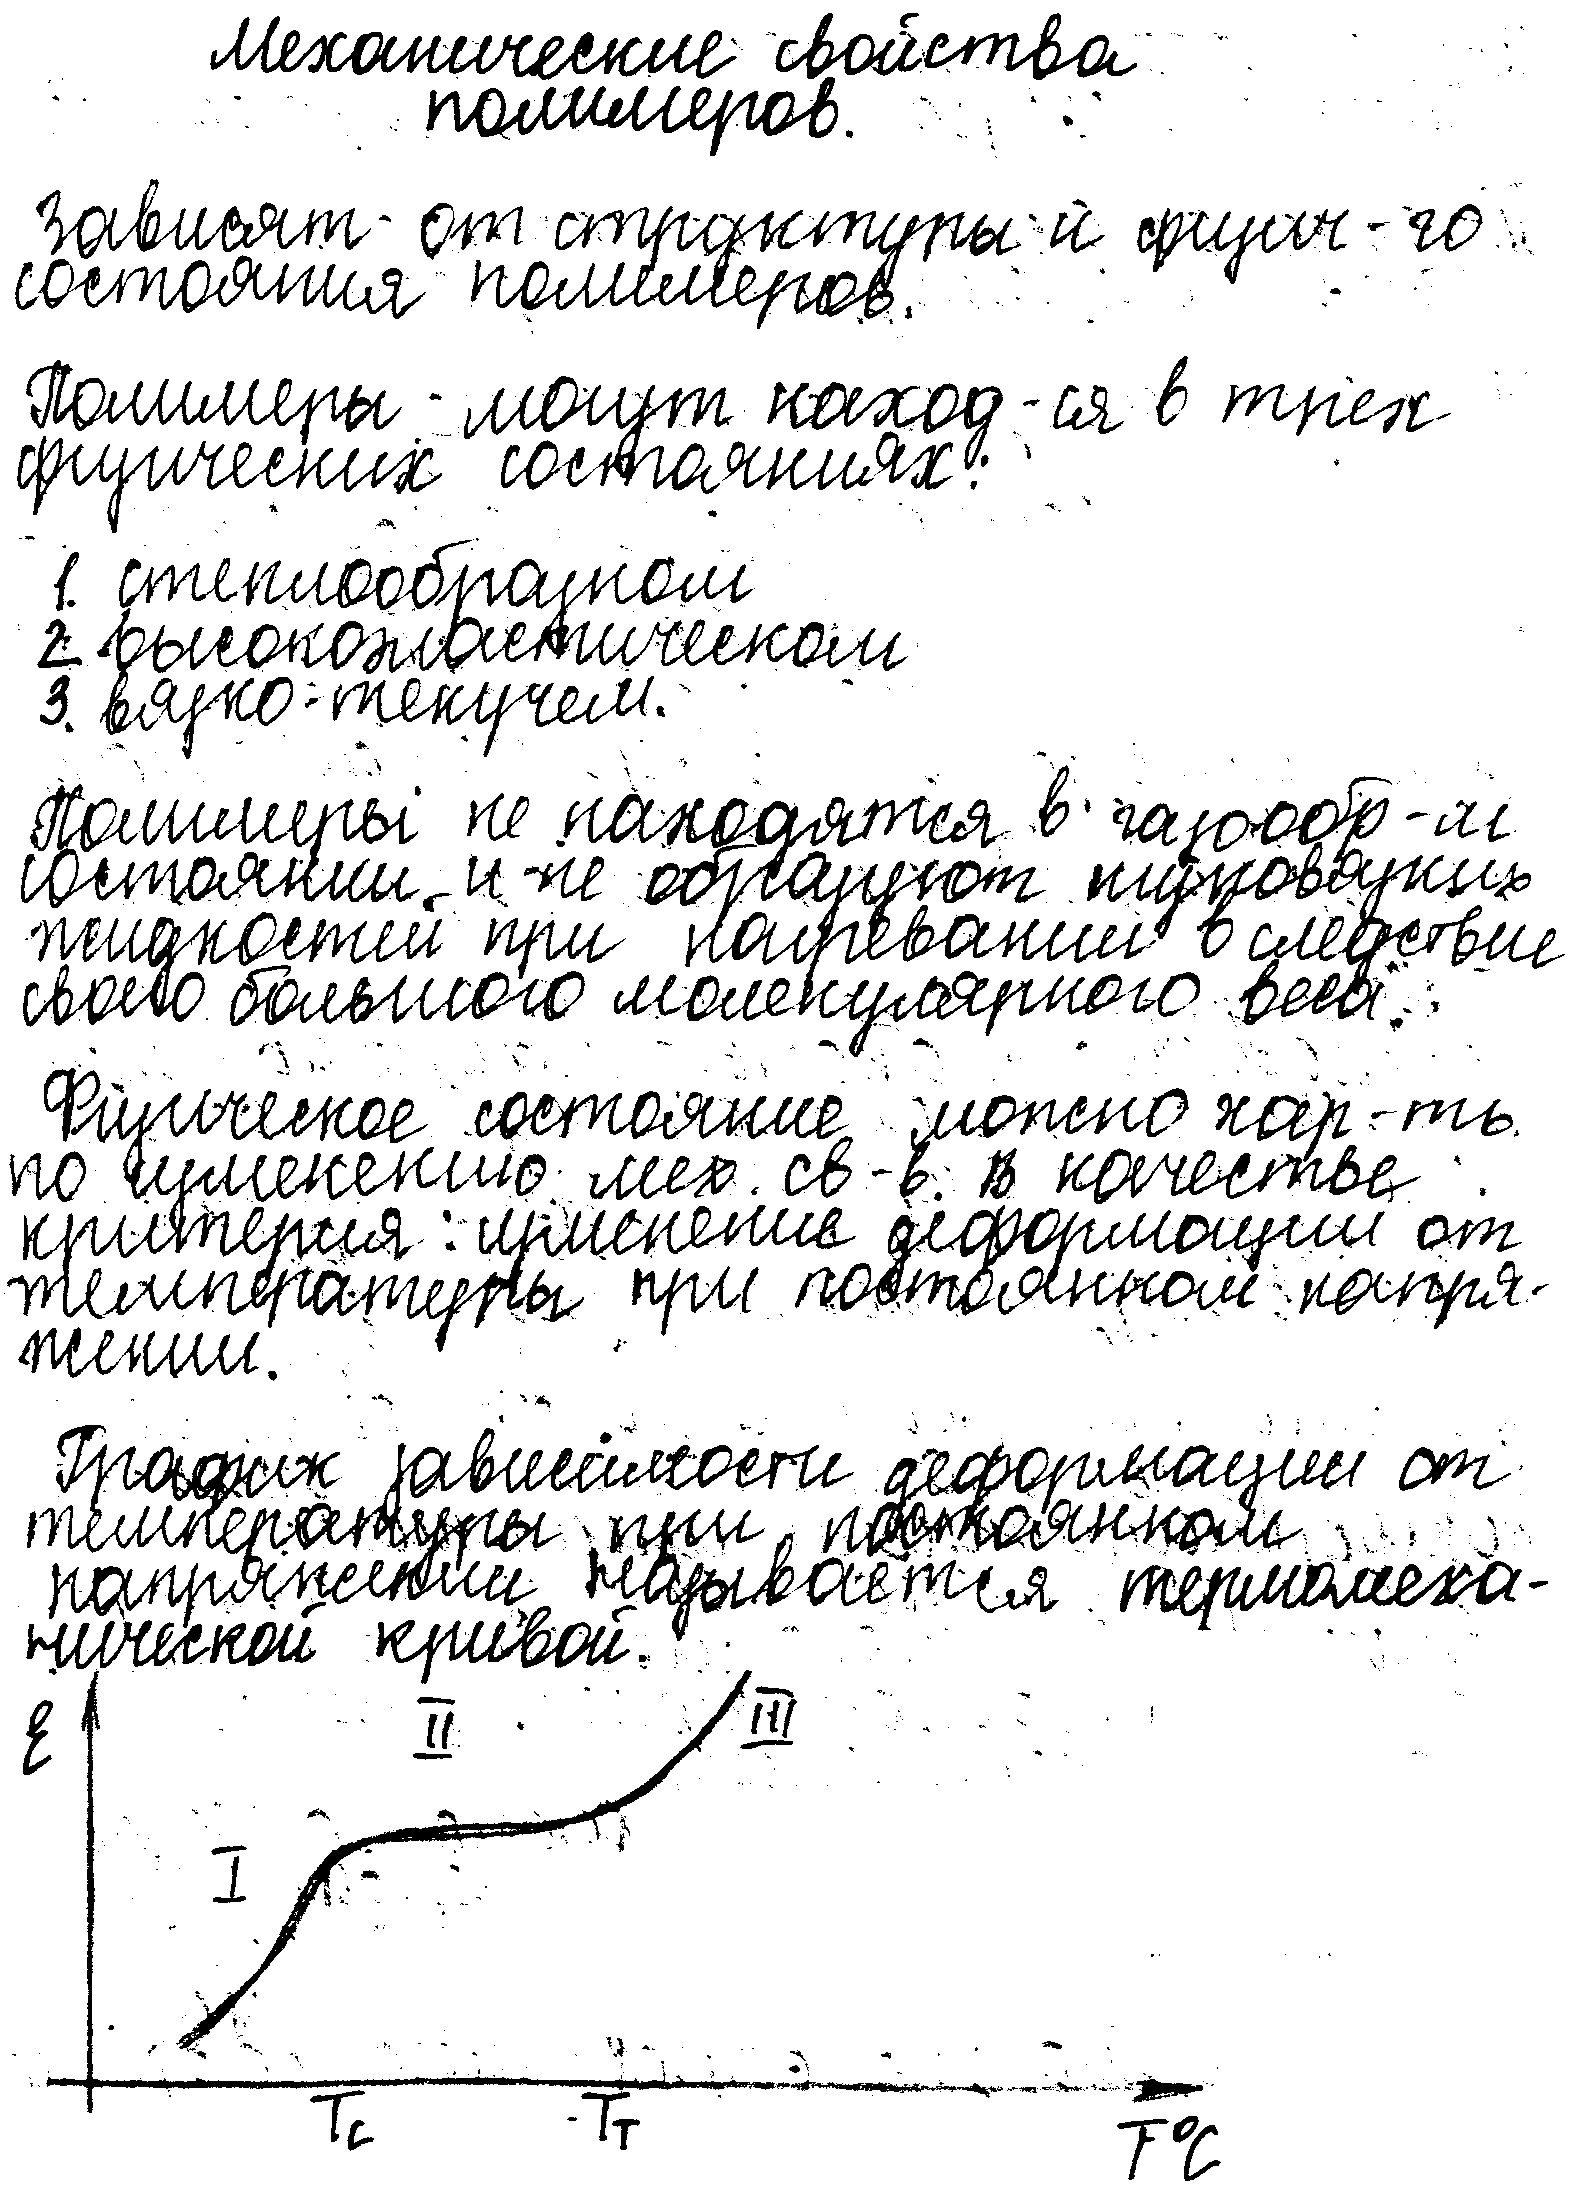 Механические свойства
полимеров.
Зависят от структуры и физич-го
состояния полимеров.
Полимеры - могут наход-ся в трех
физических состояниях:
1. стеклообразном
2. высокоэластическом
3. вязко-текучем.
Полимеры не находятся в газообр-м
состоянии и не образуют низковязких
жидкостей при нагревании вследствие
своего большого молекулярного веса.
Физическое состояние можно хар-ть
по изменению мех. св-в. В качестве
критерия: изменение деформации от
температуры при постоянном напря-
жении.
График зависимости деформации от
температуры при постоянном
напряжении называется термомеха-
нической кривой.
ε
I
II
III
Tс
Tт
T°C